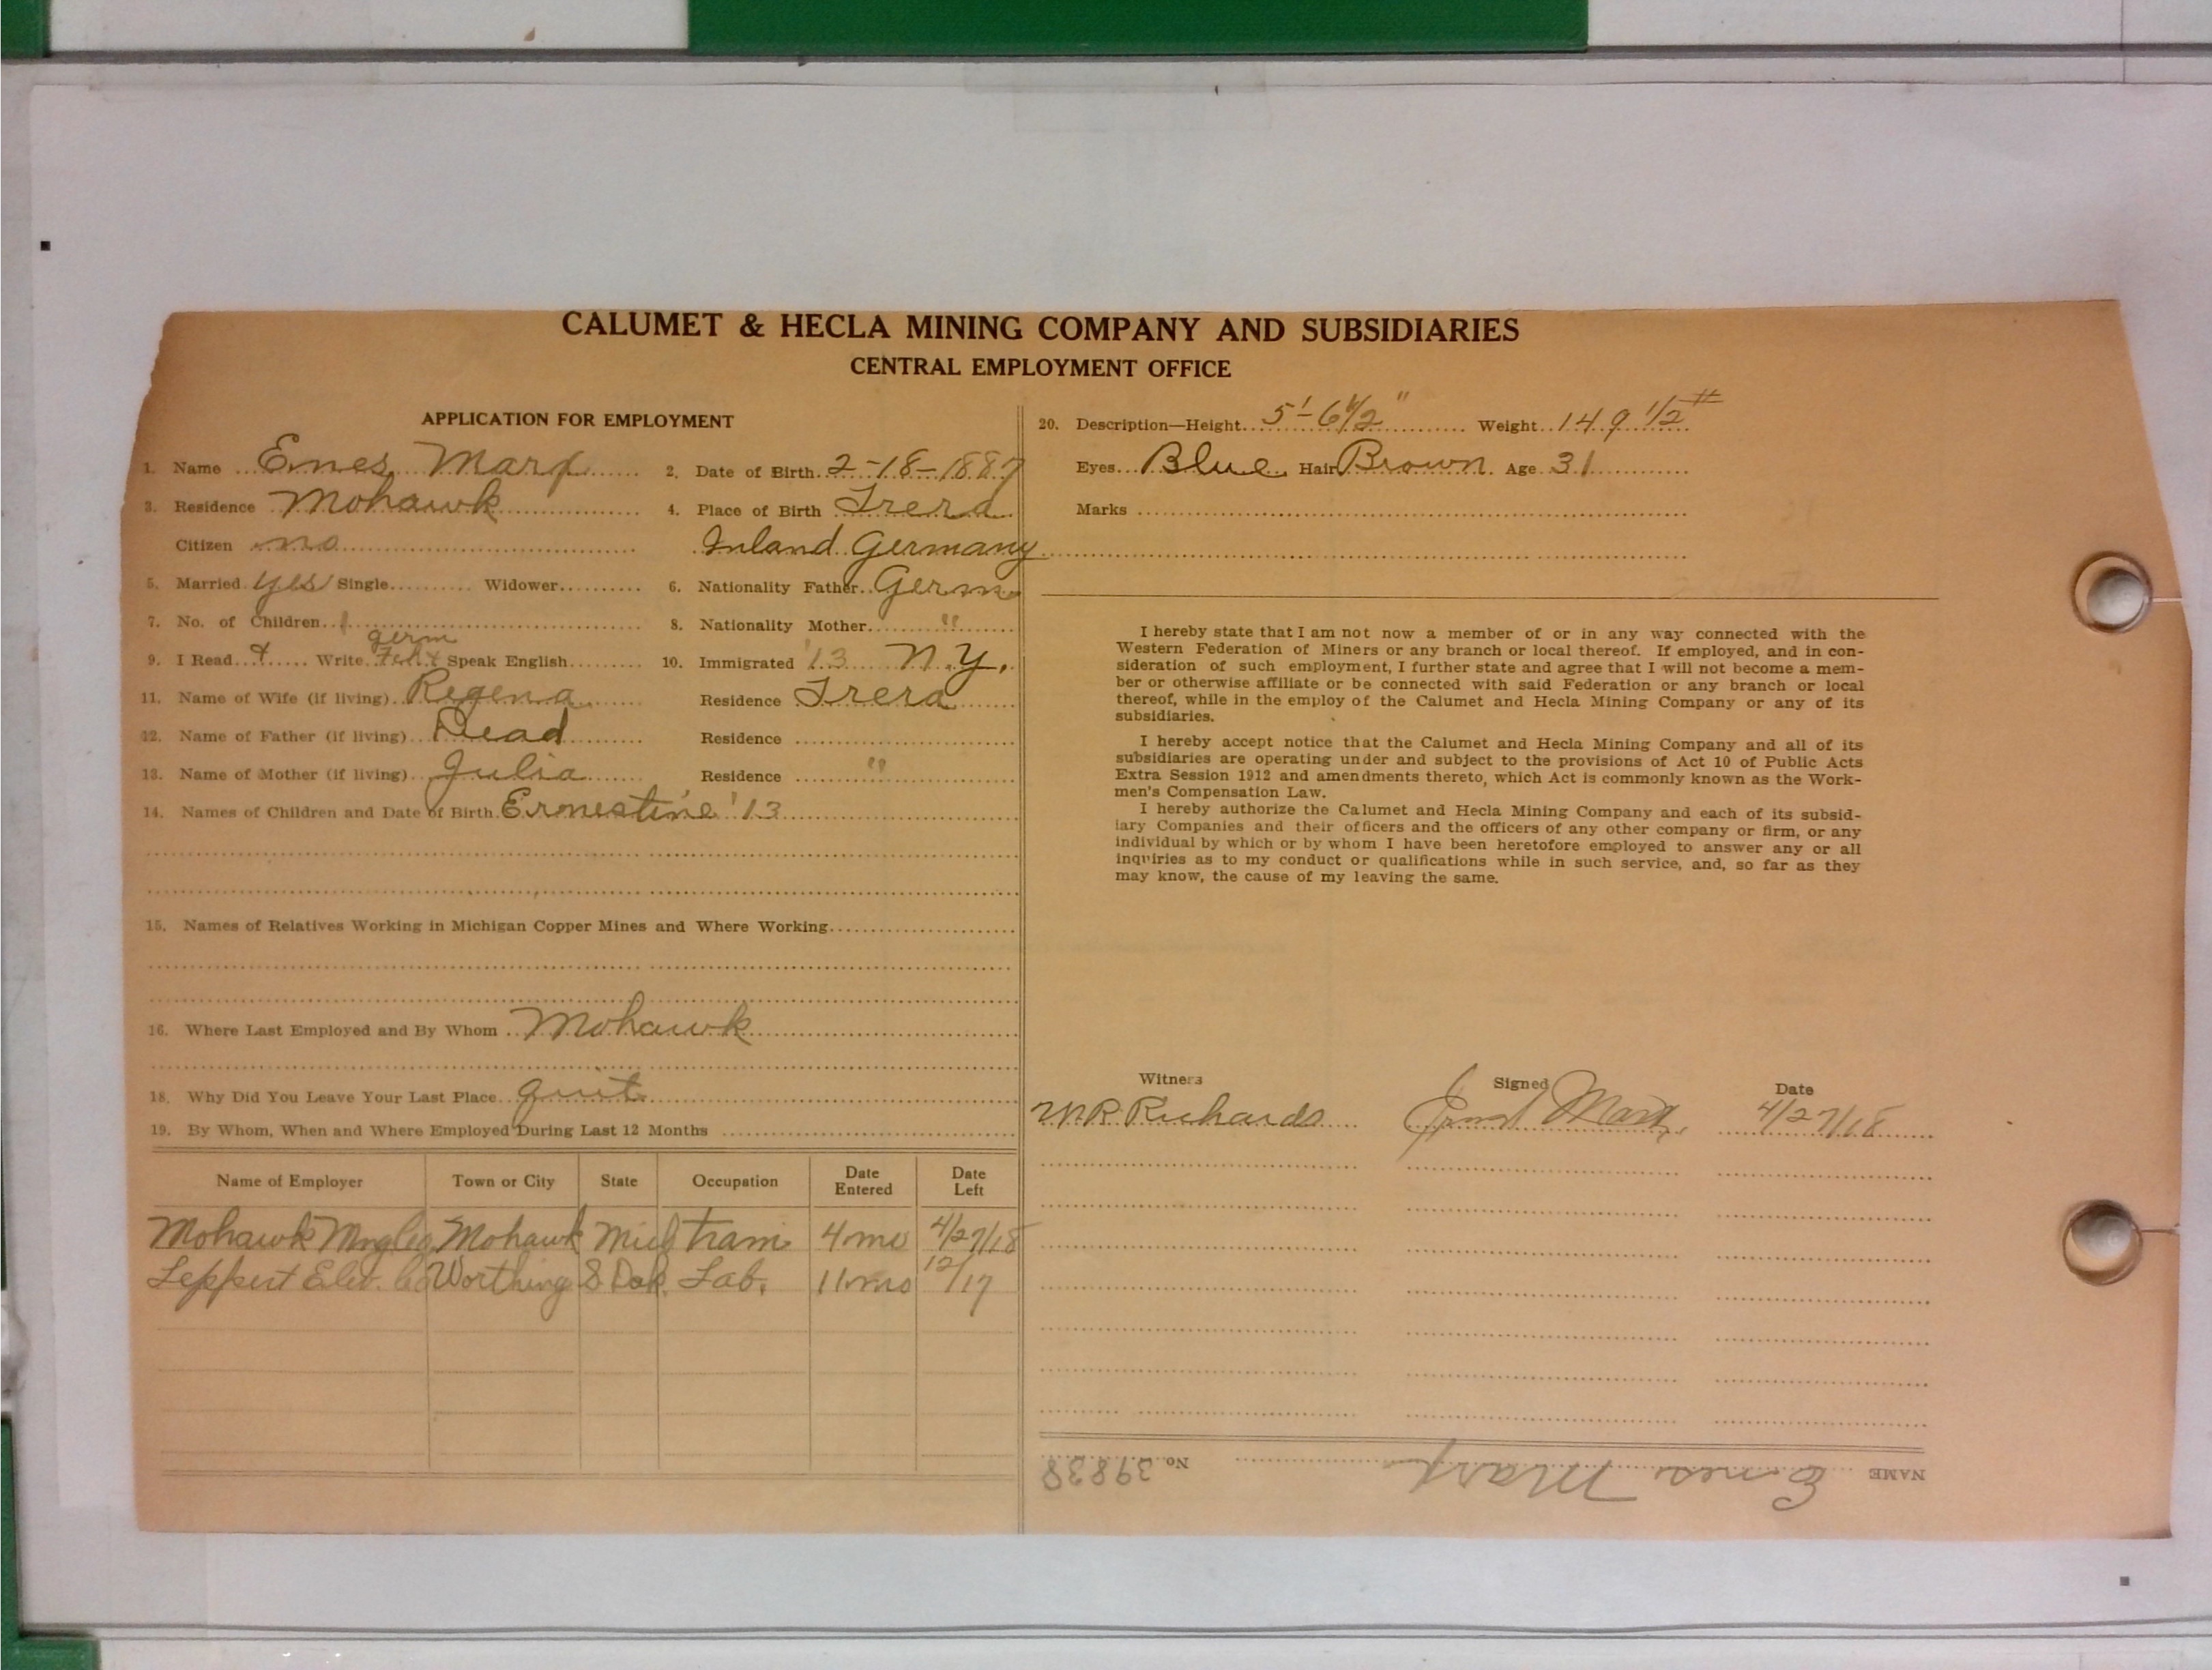 CALUMET & HECLA MINING COMPANY AND SUBSIDIARIES
CENTRAL EMPLOYMENT OFFICE
APPLICATION FOR EMPLOYMENT
1. Name Ernes Marx
2. Date of Birth 2-18-1887
3. Residence Mohawk
4. Place of Birth Trera
Citizen no
Inland Germany
5. Married yes Single Widower
6. Nationality Father Germ
7. No. of Children 1
8. Nationality Mother "
germ
9. I Read & Write Speak English
10. Immigrated '13 N.Y.
11. Name of Wife (if living) Regena
Residence Trera
12. Name of Father (if living) Dead
Residence
13. Name of Mother (if living) Julia
Residence "
14. Names of Children and Date of Birth Ernestine '13
15. Names of Relatives Working in Michigan Copper Mines and Where Working
16. Where Last Employed and By Whom Mohawk
18. Why Did You Leave Your Last Place quit
19. By Whom, When and Where Employed During Last 12 Months
Name of Employer Town or City State Occupation Date Entered Date Left
Mohawk Mng Co Mohawk Mich tram 4 mo 4/27/18
Leppert Elev. Co Worthing S Dak Lab. 11 mo 12/17
20. Description—Height 5'-6 1/2" Weight 149 1/2 #
Eyes Blue Hair Brown Age 31
Marks
I hereby state that I am not now a member of or in any way connected with the
Western Federation of Miners or any branch or local thereof. If employed, and in con-
sideration of such employment, I further state and agree that I will not become a mem-
ber or otherwise affiliate or be connected with said Federation or any branch or local
thereof, while in the employ of the Calumet and Hecla Mining Company or any of its
subsidiaries.
I hereby accept notice that the Calumet and Hecla Mining Company and all of its
subsidiaries are operating under and subject to the provisions of Act 10 of Public Acts
Extra Session 1912 and amendments thereto, which Act is commonly known as the Work-
men's Compensation Law.
I hereby authorize the Calumet and Hecla Mining Company and each of its subsid-
iary Companies and their officers and the officers of any other company or firm, or any
individual by which or by whom I have been heretofore employed to answer any or all
inquiries as to my conduct or qualifications while in such service, and, so far as they
may know, the cause of my leaving the same.
Witness Signed Date
W R Richards Ernst Marx 4/27/18
NAME Ernes Marx No. 39838